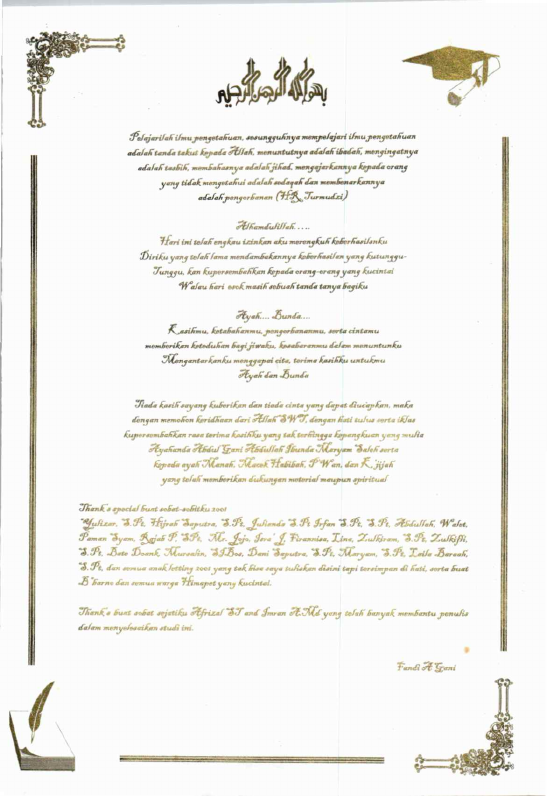 بسم الله الرحمن الرحيم
Pelajarilah ilmu pengetahuan, sesungguhnya mempelajari ilmu pengetahuan
adalah tanda takut kepada Allah, menuntutnya adalah ibadah, mengingatnya
adalah tasbih, membahasnya adalah jihad, mengajarkannya kepada orang
yang tidak mengetahui adalah sedeqah dan membenarkannya
adalah pengorbanan (HR. Turmudzi)
Alhamdulillah ....
Hari ini telah engkau izinkan aku merengkuh keberhasilanku
Diriku yang telah lama mendambakannya keberhasilan yang kutunggu-
Tunggu, kan kupersembahkan kepada orang-orang yang kucintai
Walau hari esok masih sebuah tanda tanya bagiku
Ayah.... Bunda....
Kasihmu, ketabahanmu, pengorbananmu, serta cintamu
memberikan keteduhan bagi jiwaku, kesabaranmu dalam menuntunku
Mengantarkanku menggapai cita, terima kasihku untukmu
Ayah dan Bunda
Tiada kasih sayang kuberikan dan tiada cinta yang dapat diucapkan, maka
dengan memohon keridhaan dari Allah SWT, dengan hati tulus serta iklas
kupersembahkan rasa terima kasihku yang tak terhingga kepangkuan yang mulia
Ayahanda Abdul Gani Abdullah Ibunda Maryam Saleh serta
kepada ayah Manah, Macek Habibah, P'Wan, dan K'jijah
yang telah memberikan dukungan material maupun spiritual
Thank's special buat sobat-sobitku 2001
Yulizar, S.Pt, Hijrah Saputra, S.Pt, Juliando S.Pt Irfan S.Pt, S.Pt, Abdullah, Walet,
Paman Syam, Rajab P. SPt, Mr. Jojo, Isra' J, Firannisa, Lina, Zulhiram, S.Pt, Zulkifli,
S.Pt, Beto Doank, Mursalin, SIBos, Dani Saputra, S.Pt, Maryam, S.Pt, Laila Barsah,
S.Pt, dan semua anak letting 2001 yang tak bisa saya tuliskan disini tapi tersimpan di hati, serta buat
B'barno dan semua warga Himapet yang kucintai.
Thank's buat sobat sejatiku Afrizal ST and Imran A.Md yang telah banyak membantu penulis
dalam menyelesaikan studi ini.
Fandi A Gani